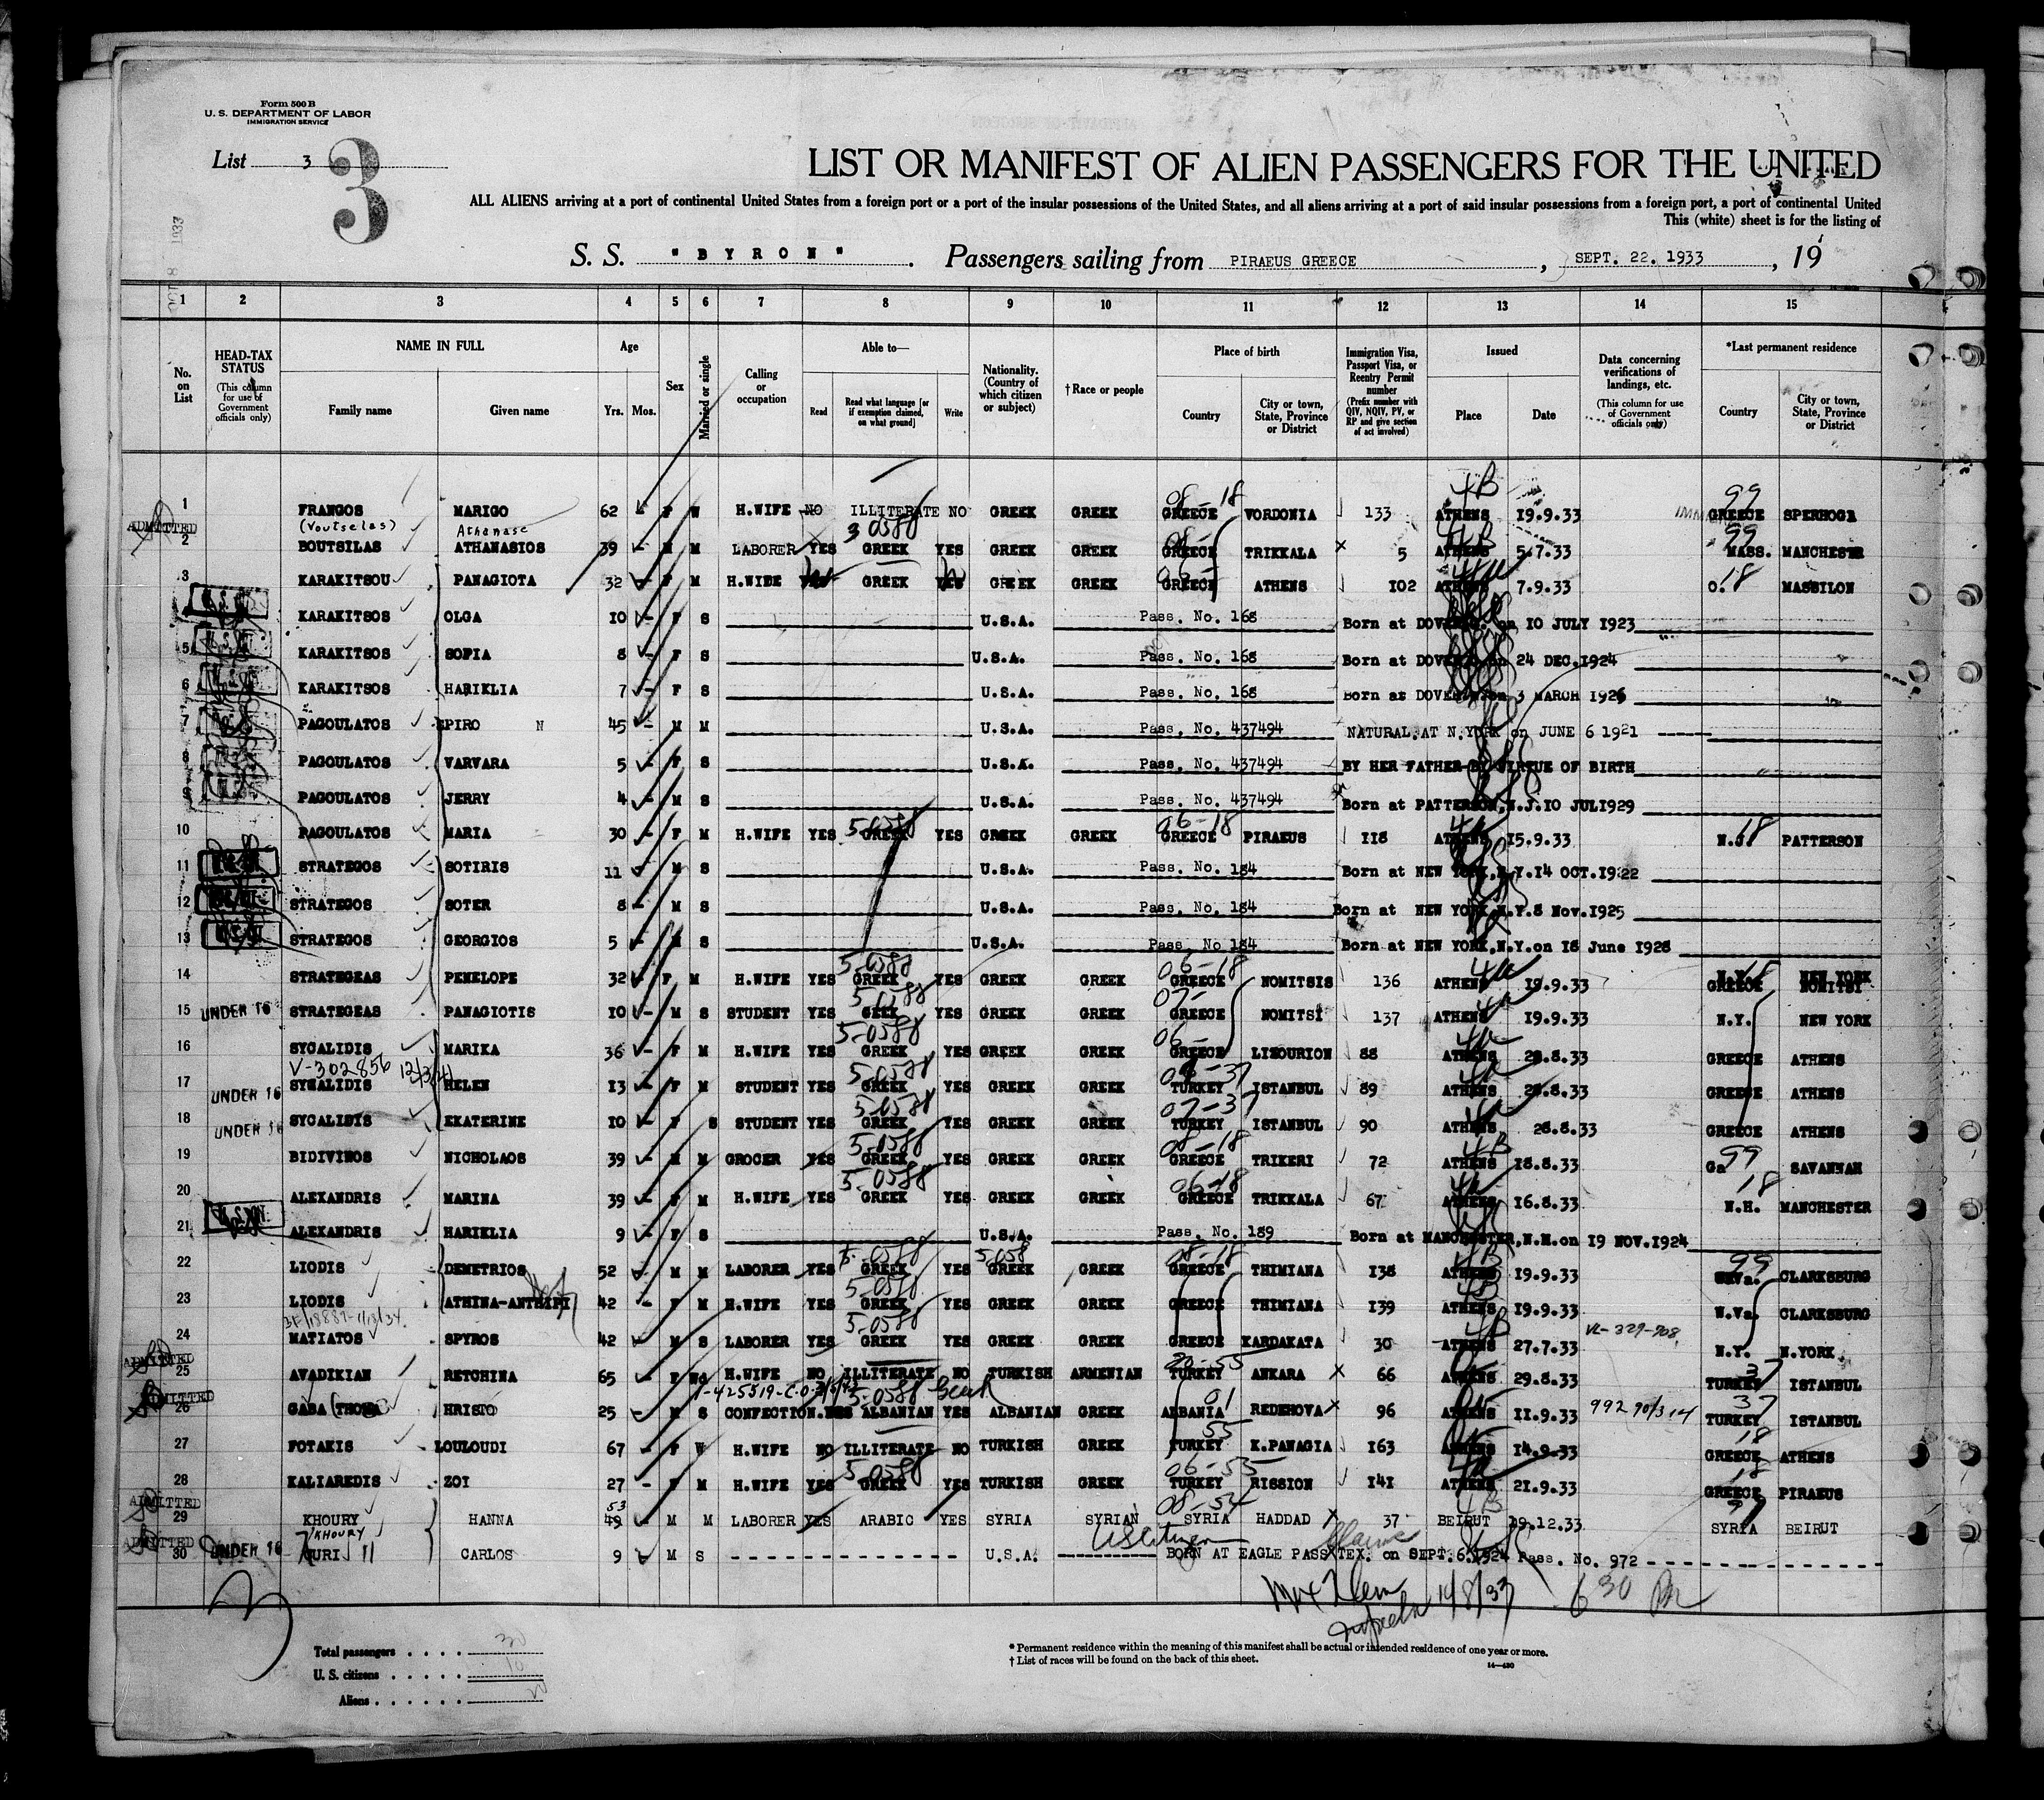 Form 500 B
U. S. DEPARTMENT OF LABOR
IMMIGRATION SERVICE
List 3
3
LIST OR MANIFEST OF ALIEN PASSENGERS FOR THE UNITED
ALL ALIENS arriving at a port of continental United States from a foreign port or a port of the insular possessions of the United States, and all aliens arriving at a port of said insular possessions from a foreign port, a port of continental United
This (white) sheet is for the listing of
S. S. "BYRON". Passengers sailing from PIRAEUS GREECE, SEPT. 22. 1933, 19
1 2 3 4 5 6 7 8 9 10 11 12 13 14 15
No. on List
HEAD-TAX STATUS (This column for use of Government officials only)
NAME IN FULL Family name Given name
Age Yrs. Mos.
Sex
Married or single
Calling or occupation
Able to— Read Read what language [or if exemption claimed, on what ground] Write
Nationality. (Country of which citizen or subject)
† Race or people
Place of birth Country City or town, State, Province or District
Immigration Visa, Passport Visa, or Reentry Permit number (Prefix number with QIV, NQIV, PV, or RP and give section of act involved)
Issued Place Date
Data concerning verifications of landings, etc. (This column for use of Government officials only)
*Last permanent residence Country City or town, State, Province or District
1 FRANGOS MARIGO 62 - F W H.WIFE NO ILLITERATE NO GREEK GREEK GREECE VORDONIA 133 ATHENS 19.9.33 GREECE SPERHOGI
ADMITTED (Voutselas) Athanase
2 BOUTSILAS ATHANASIOS 39 - M M LABORER YES GREEK YES GREEK GREEK GREECE TRIKKALA 5 ATHENS 5.7.33 MASS. MANCHESTR
3 KARAKITSOU PANAGIOTA 32 - F M H.WIFE YES GREEK YES GREEK GREEK GREECE ATHENS 102 ATHENS 7.9.33 O. MASSILON
KARAKITSOS OLGA 10 - F S U.S.A. Pass. No. 168 Born at DOVER on 10 JULY 1923
5 KARAKITSOS SOFIA 8 - F S U.S.A. Pass. No. 168 Born at DOVER on 24 DEC.1924
6 KARAKITSOS HARIKLIA 7 - F S U.S.A. Pass. No. 168 Born at DOVER on 3 MARCH 1926
7 PAGOULATOS SPIRO N 45 - M M U.S.A. Pass. No. 437494 NATURAL.AT N.YORK on JUNE 6 1921
8 PAGOULATOS VARVARA 5 - F S U.S.A. Pass. No. 437494 BY HER FATHER BY VIRTUE OF BIRTH
9 PAGOULATOS JERRY 4 - M S U.S.A. Pass. No. 437494 Born at PATTERSON,N.J.10 JUL1929
10 PAGOULATOS MARIA 30 - F M H.WIFE YES GREEK YES GREEK GREEK GREECE PIRAEUS 118 ATHENS 15.9.33 N.J. PATTERSON
11 STRATEGOS SOTIRIS 11 - M S U.S.A. Pass. No. 184 Born at NEW YORK,N.Y.14 OCT.1922
12 STRATEGOS SOTER 8 - M S U.S.A. Pass. No. 184 Born at NEW YORK,N.Y.8 Nov.1925
13 STRATEGOS GEORGIOS 5 - M S U.S.A. Pass. No 184 Born at NEW YORK,N.Y.on 18 June 1928
14 STRATEGEAS PENELOPE 32 F M H.WIFE YES GREEK YES GREEK GREEK GREECE NOMITSIS 136 ATHENS 19.9.33 GREECE NOMITSI N.Y. NEW YORK
15 UNDER 16 STRATEGEAS PANAGIOTIS 10 - M S STUDENT YES GEEK YES GREEK GREEK GREECE NOMITSI 137 ATHENS 19.9.33 N.Y. NEW YORK
16 SYCALIDIS MARIKA 36 - F M H.WIFE YES GREEK YES GREEK GREEK GREECE LIXOURION 88 ATHENS 28.8.33 GREECE ATHENS
V-302856
17 UNDER 16 SYKALIDIS HELEN 13 - F M STUDENT YES GREEK YES GREEK GREEK TURKEY ISTANBUL 89 ATHENS 28.8.33 GREECE ATHENS
18 UNDER 16 SYCALISIS EKATERINE 10 - F S STUDENT YES GREEK YES GREEK GREEK TURKEY ISTANBUL 90 ATHENS 28.8.33 GREECE ATHENS
19 BIDIVINOS NICHOLAOS 39 - M M GROCER YES GREEK YES GREEK GREEK GREECE TRIKERI 72 ATHENS 18.8.33 Ga SAVANNAH
20 ALEXANDRIS MARINA 39 - F M H.WIFE YES GREEK YES GREEK GREEK GREECE TRIKKALA 67 ATHENS 16.8.33 N.H. MANCHESTER
21 ALEXANDRIS HARIKLIA 9 - F S U.S.A. Pass. No. 189 Born at MANCHESTER,N.H.on 19 NOV.1924
22 LIODIS DEMETRIOS 52 - M M LABORER YES GREEK YES GREEK GREEK GREECE THIMIANA 138 ATHENS 19.9.33 W.Va. CLARKSBURG
23 LIODIS ATHINA-ANTHIPI 42 - F M H.WIFE YES GREEK YES GREEK GREEK GREECE THIMIANA 139 ATHENS 19.9.33 W.Va CLARKSBURG
24 MATIATOS SPYROS 42 - M S LABORER YES GREEK YES GREEK GREEK GREECE KARDAKATA 30 ATHENS 27.7.33 VL-329-908 N.Y. N.YORK
ADMITTED
25 AVADIKIAN RETCHINA 65 - F H.WIFE NO ILLITERATE NO TURKISH ARMENIAN TURKEY ANKARA 66 ATHENS 29.8.33 TURKEY ISTANBUL
ADMITTED
26 GABA (THOMA HRISTO 25 - M S CONFECTION. YES ALBANIAN YES ALBANIAN GREEK ALBANIA REDEHOVA 96 ATHENS 11.9.33 TURKEY ISTANBUL
27 FOTAKIS LOULOUDI 67 - F W H.WIFE NO ILLITERATE NO TURKISH GREEK TURKEY K.PANAGIA 163 ATHENS 14.9.33 GREECE ATHENS
28 KALIAREDIS ZOI 27 - F M H.WIFE YES GREEK YES TURKISH GREEK TURKEY RISSION 141 ATHENS 21.9.33 GREECE PIRAEUS
ADMITTED 53
29 KHOURY HANNA 49 - M M LABORER YES ARABIC YES SYRIA SYRIAN SYRIA HADDAD 37 BEIRUT 19.12.33 SYRIA BEIRUT
ADMITTED KHOURY US Citizen
30 UNDER 16 KURI CARLOS 9 M S U.S.A. BORN AT EAGLE PASS TEX. on SEPT.6.1924 Pass. No. 972
630 PM
Total passengers . . . . 30
U. S. citizens . . . . . 10
Aliens . . . . . . 20
* Permanent residence within the meaning of this manifest shall be actual or intended residence of one year or more.
† List of races will be found on the back of this sheet.
14—430